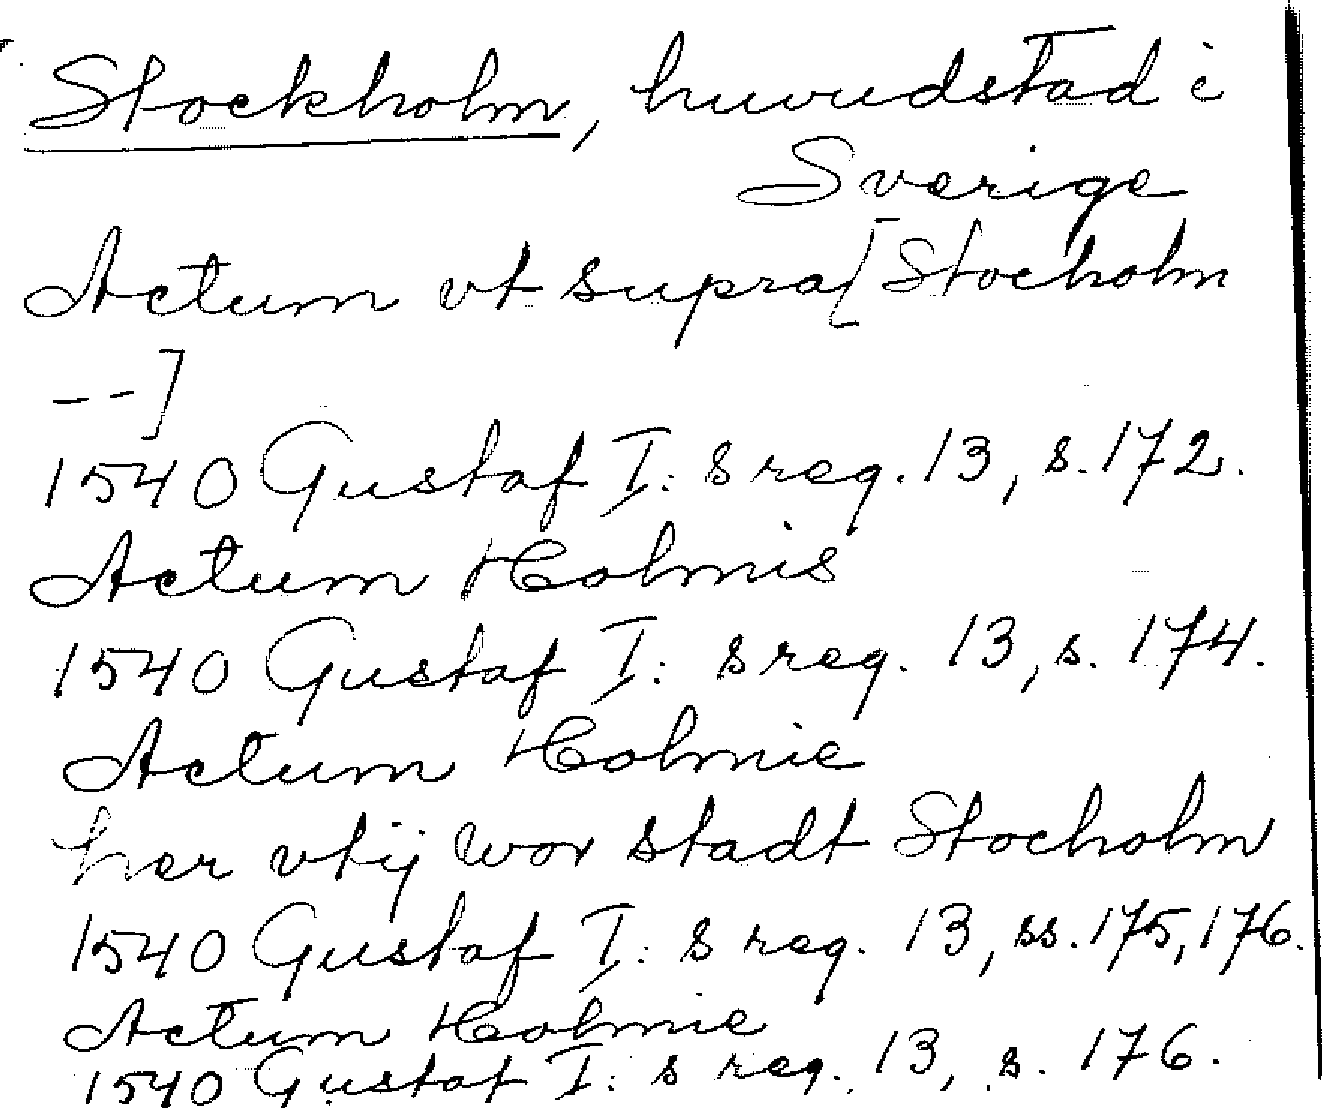 Stockholm, huvudstad i
Sverige
Actum vt supra [Stocholm
--]
1540 Gustaf I:s reg. 13, s. 172.
Actum Holmis
1540 Gustaf I:s reg. 13, s. 174.
Actum Holmie
her vtij wor stadt Stocholm
1540 Gustaf I:s reg. 13, ss. 175, 176.
Actum Holmie
1540 Gustaf I:s reg. 13, s. 176.